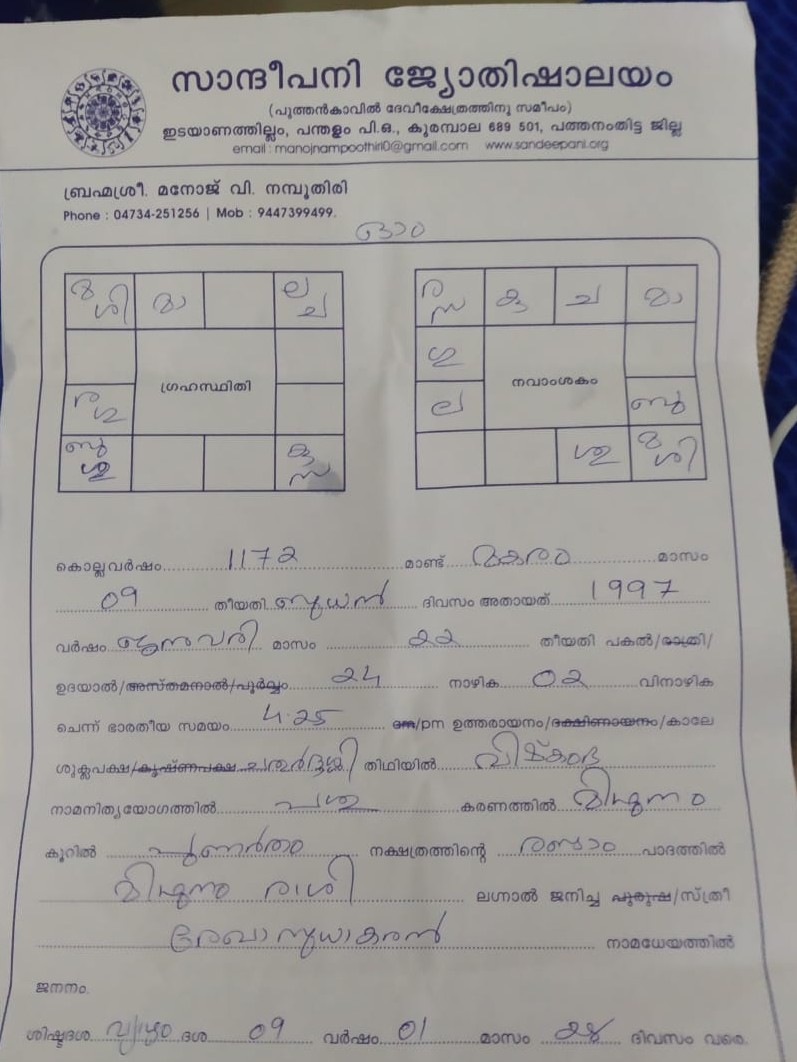 സാന്ദീപനി ജ്യോതിഷാലയം
(പുത്തൻകാവിൽ ദേവീക്ഷേത്രത്തിനു സമീപം)
ഇടയാണത്തില്ലം, പന്തളം പി.ഒ., കുരമ്പാല 689 501, പത്തനംതിട്ട ജില്ല
email : manojnampoothiri0@gmail.com www.sandeepani.org
ബ്രഹ്മശ്രീ. മനോജ് വി. നമ്പൂതിരി
Phone : 04734-251256 | Mob : 9447399499.
ഓം
മ ശി മാ ല ച
ര ഗു
ഗ്രഹസ്ഥിതി
ബു ശു കു സ
ര സ കു ച മാ
ഗു
ല ബു
നവാംശകം
ശു മ ശി
കൊല്ലവർഷം 1172 മാണ്ട് മകരം മാസം
09 തീയതി ബുധൻ ദിവസം അതായത് 1997
വർഷം ജനുവരി മാസം 22 തീയതി പകൽ/രാത്രി/
ഉദയാൽ/അസ്തമനാൽ/പൂർവ്വം 24 നാഴിക 02 വിനാഴിക
ചെന്ന് ഭാരതീയ സമയം 4.25 am/pm ഉത്തരായനം/ദക്ഷിണായനം/കാലേ
ശുക്ലപക്ഷ/കൃഷ്ണപക്ഷ ചതുർദ്ദശി തിഥിയിൽ വിഷ്കംഭ
നാമനിത്യയോഗത്തിൽ പശു കരണത്തിൽ മിഥുനം
കൂറിൽ പുണർതം നക്ഷത്രത്തിന്റെ രണ്ടാം പാദത്തിൽ
മിഥുനം രാശി ലഗ്നാൽ ജനിച്ച പുരുഷ/സ്ത്രീ
രേഖാ സുധാകരൻ നാമധേയത്തിൽ
ജനനം.
ശിഷ്ടദശ വ്യാഴം ദശ 09 വർഷം 01 മാസം ദിവസം വരെ.